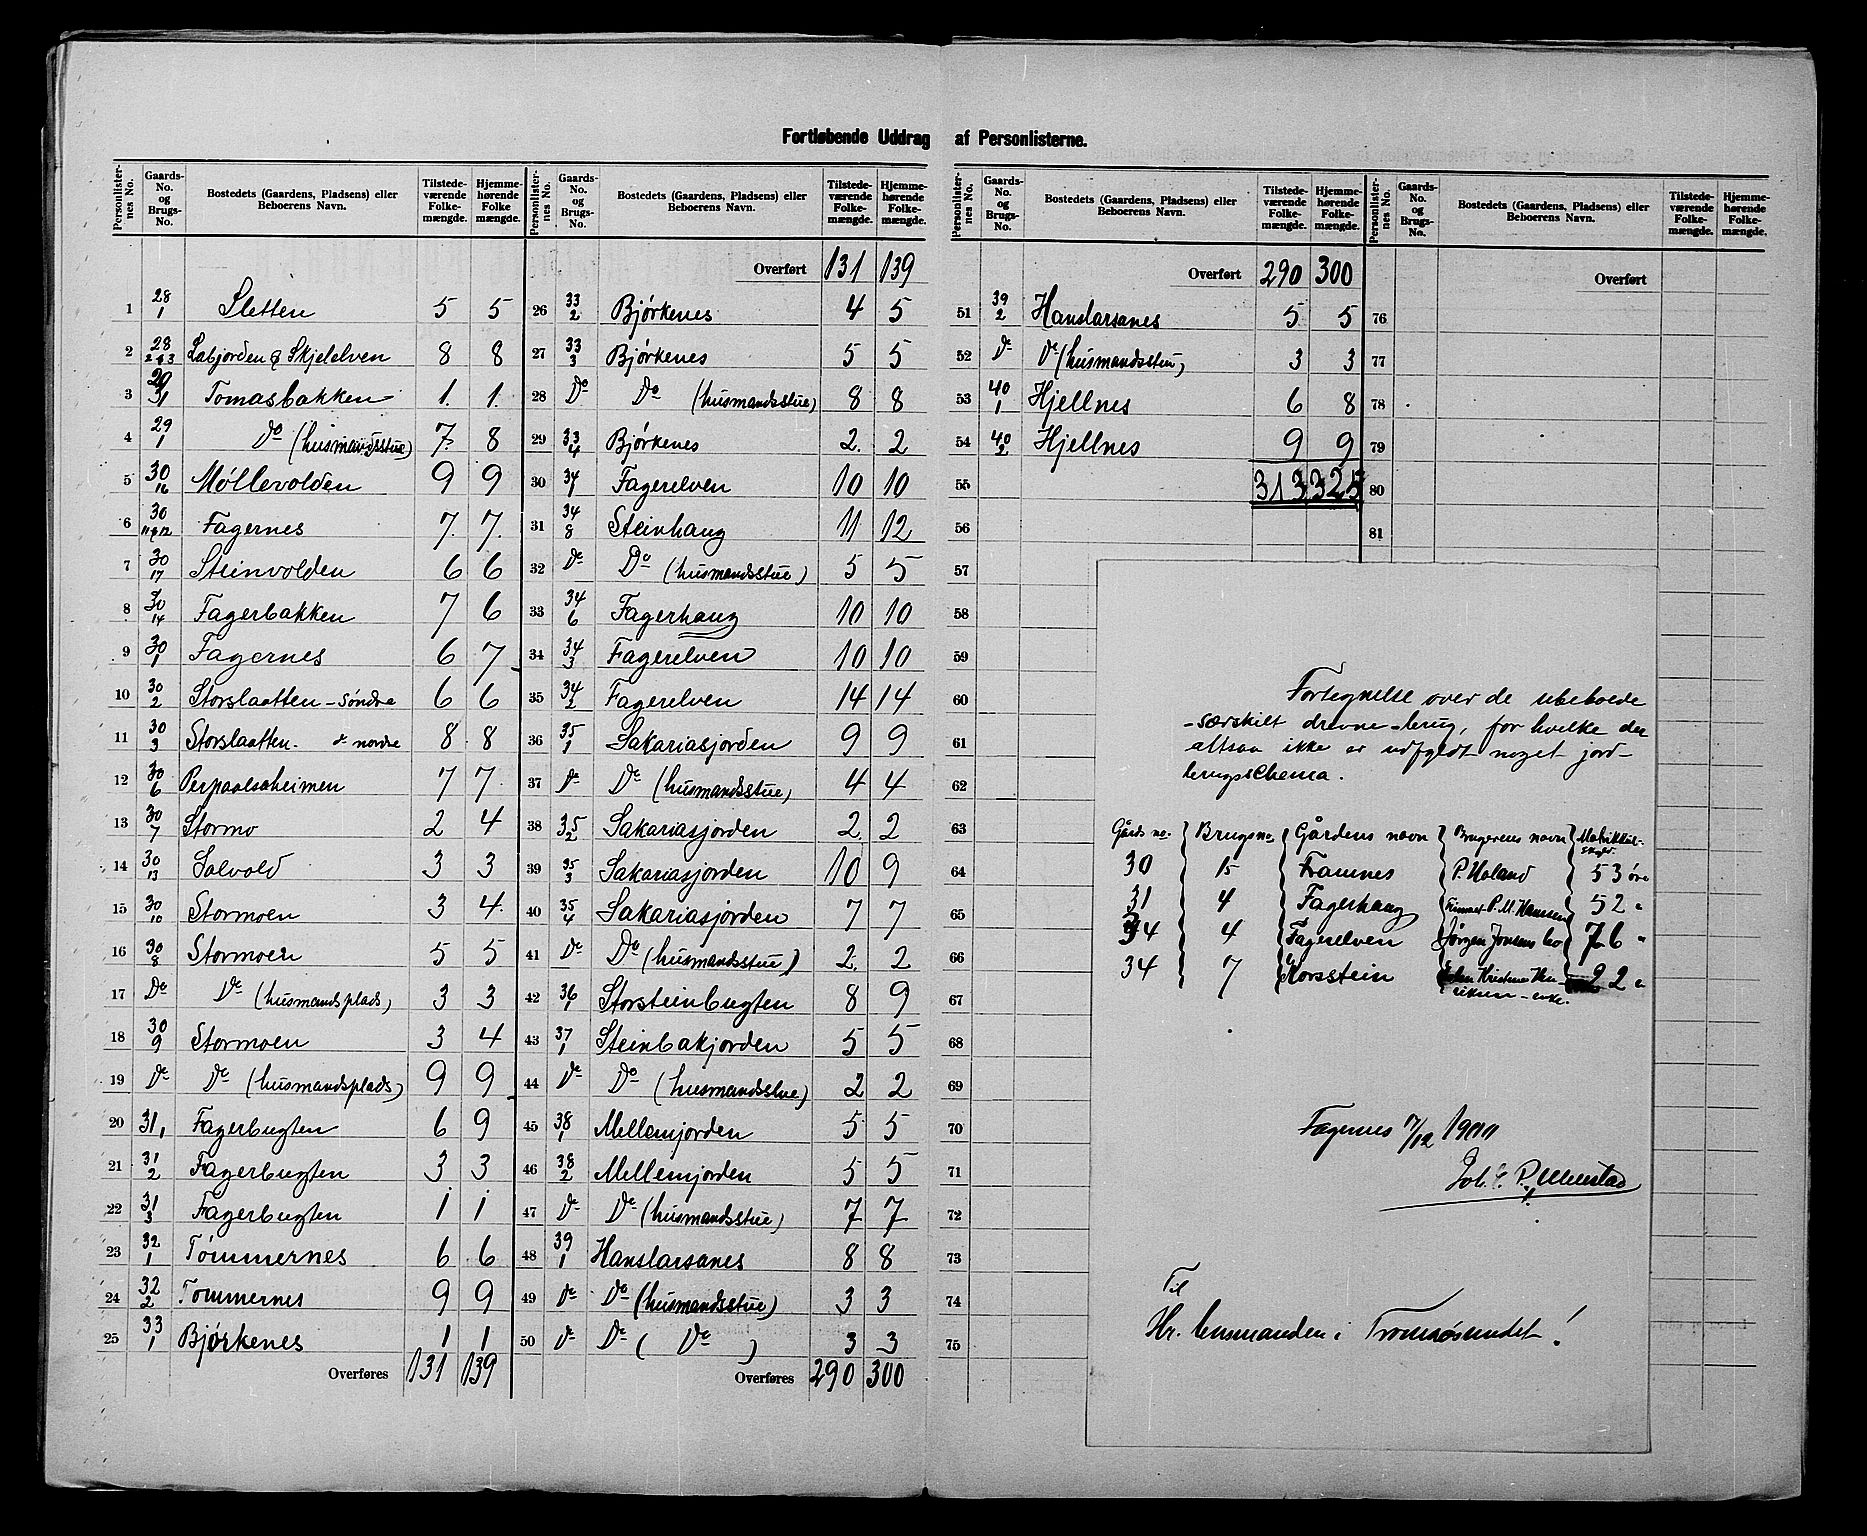 Fortløbende Uddrag af Personlisterne.
Personlister-nes No. | Gaards-No. og Brugs-No. | Bostedets (Gaardens, Pladsens) eller Beboerens Navn. | Tilstedeværende Folkemængde. | Hjemmehørende Folkemængde.
1 28/1 Sletten 5 5
2 28/2&3 Labjorden & Skjelelven 8 8
3 29/1 Tomasbakken 1. 1.
4 29/1 Do (husmandsstue) 7 8
5 30/16 Møllevolden 9 9
6 30/11&12 Fagernes 7. 7.
7 30/17 Steinvolden 6 6
8 30/14 Fagerbakken 7 6
9 30/1 Fagernes 6 7
10 30/2 Storslaatten - søndre 6 6
11 30/3 Storslaatten. do nordre 8 8
12 30/6 Perpaalsaheimen 7 7
13 30/7 Stormo 2 4
14 30/13 Solvold 3 3
15 30/10 Stormoen 3 4
16 30/8 Stormoen 5 5
17 Do Do (husmandsplads) 3 3
18 30/9 Stormoen 3 4
19 Do Do (husmandsplads) 9 9
20 31/1 Fagerbugten 6 9
21 31/2 Fagerbugten 3 3
22 31/3 Fagerbugten 1 1
23 32/1 Tømmernes 6 6
24 32/2 Tømmernes 9 9
25 33/1 Bjørkenes 1 1
Overføres 131 139
Personlister-nes No. | Gaards-No. og Brugs-No. | Bostedets (Gaardens, Pladsens) eller Beboerens Navn. | Tilstedeværende Folkemængde. | Hjemmehørende Folkemængde.
Overført 131 139
26 33/2 Bjørkenes 4 5
27 33/3 Bjørkenes 5 5
28 Do Do (husmandsstue) 8 8
29 33/4 Bjørkenes 2. 2
30 34/1 Fagerelven 10 10
31 34/8 Steinhaug 11 12
32 Do Do (husmandsstue) 5 5
33 34/6 Fagerhaug 10 10
34 34/3 Fagerelven 10 10
35 34/2 Fagerelven 14 14
36 35/1 Sakariasjorden 9 9
37 Do Do (husmandsstue) 4 4
38 35/2 Sakariasjorden 2. 2
39 35/3 Sakariasjorden 10 9
40 35/4 Sakariasjorden 7 7
41 Do Do (husmandsstue) 2. 2
42 36/1 Storsteinbugten 8 9
43 37/1 Steinbakjorden 5 5
44 Do Do (husmandsstue) 2 2
45 38/1 Mellemjorden 5 5
46 38/2 Mellemjorden 5 5
47 Do Do (husmandsstue) 7 7
48 39/1 Hanslarsanes 8 8
49 Do Do (husmandsstue) 3 3
50 Do Do ( Do ) 3 3
Overføres 290 300
Personlister-nes No. | Gaards-No. og Brugs-No. | Bostedets (Gaardens, Pladsens) eller Beboerens Navn. | Tilstedeværende Folkemængde. | Hjemmehørende Folkemængde.
Overført 290 300
51 39/2 Hanslarsanes 5 5
52 Do Do (husmandsstue) 3 3
53 40/1 Hjellnes 6 8
54 40/2 Hjellnes 9 9
55 313 325
56
57
58
59
60
61
62
63
64
65
66
67
68
69
70
71
72
73
74
75
Personlister-nes No. | Gaards-No. og Brugs-No. | Bostedets (Gaardens, Pladsens) eller Beboerens Navn. | Tilstedeværende Folkemængde. | Hjemmehørende Folkemængde.
Overført
76
77
78
79
80
81
Fortegnelse over de ubeboede
særskilt drevne brug, for hvilke der
altsaa ikke er udfyldt noget jord-
brugsschema.
Gårds no. Brugsno. Gårdens navn Brugerens navn Matrikkul-skyld
30 15 Framnes P. Moland 53 øre
31 4 Fagerhaug P. M. Hanssen 52 "
34 4 Fagerelven Jørgen Jonsens bo 76 "
34 7 Korsstein Kristine Hen-riksen - enke. 22 "
Fagernes 7/12 1900
Til
Hr. lensmanden i Tromsøsundet!